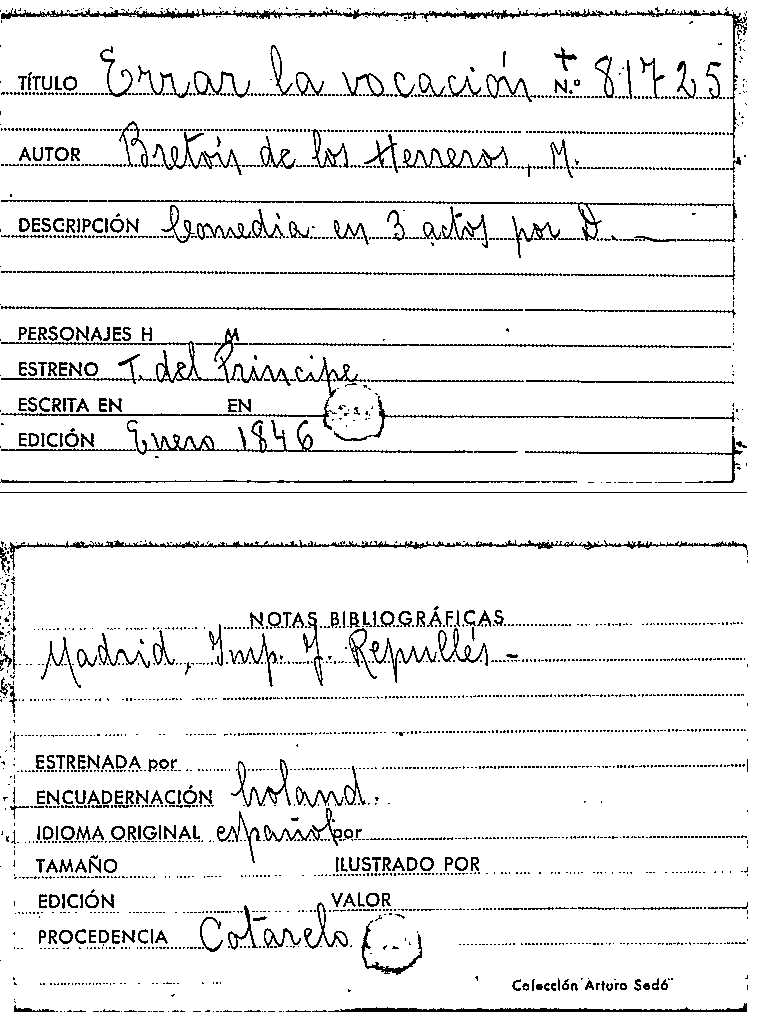 TÍTULO Errar la vocación + N.º 81725
AUTOR Bretón de los Herreros, M.
DESCRIPCIÓN Comedia en 3 actos por D. —
PERSONAJES H M
ESTRENO T. del Príncipe
ESCRITA EN EN
EDICIÓN Enero 1846
NOTAS BIBLIOGRÁFICAS
Madrid, Imp. J. Repullés -
ESTRENADA por
ENCUADERNACIÓN holand.
IDIOMA ORIGINAL español por
TAMAÑO ILUSTRADO POR
EDICIÓN VALOR
PROCEDENCIA Cotarelo
Colección "Arturo Sedó"